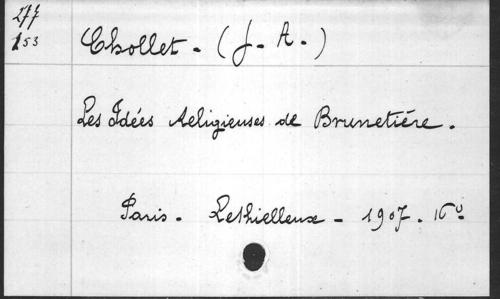 277
153
Chollet - (J. A.)
Les Idées religieuses de Brunetière.
Paris - Lethielleux - 1907. 16º